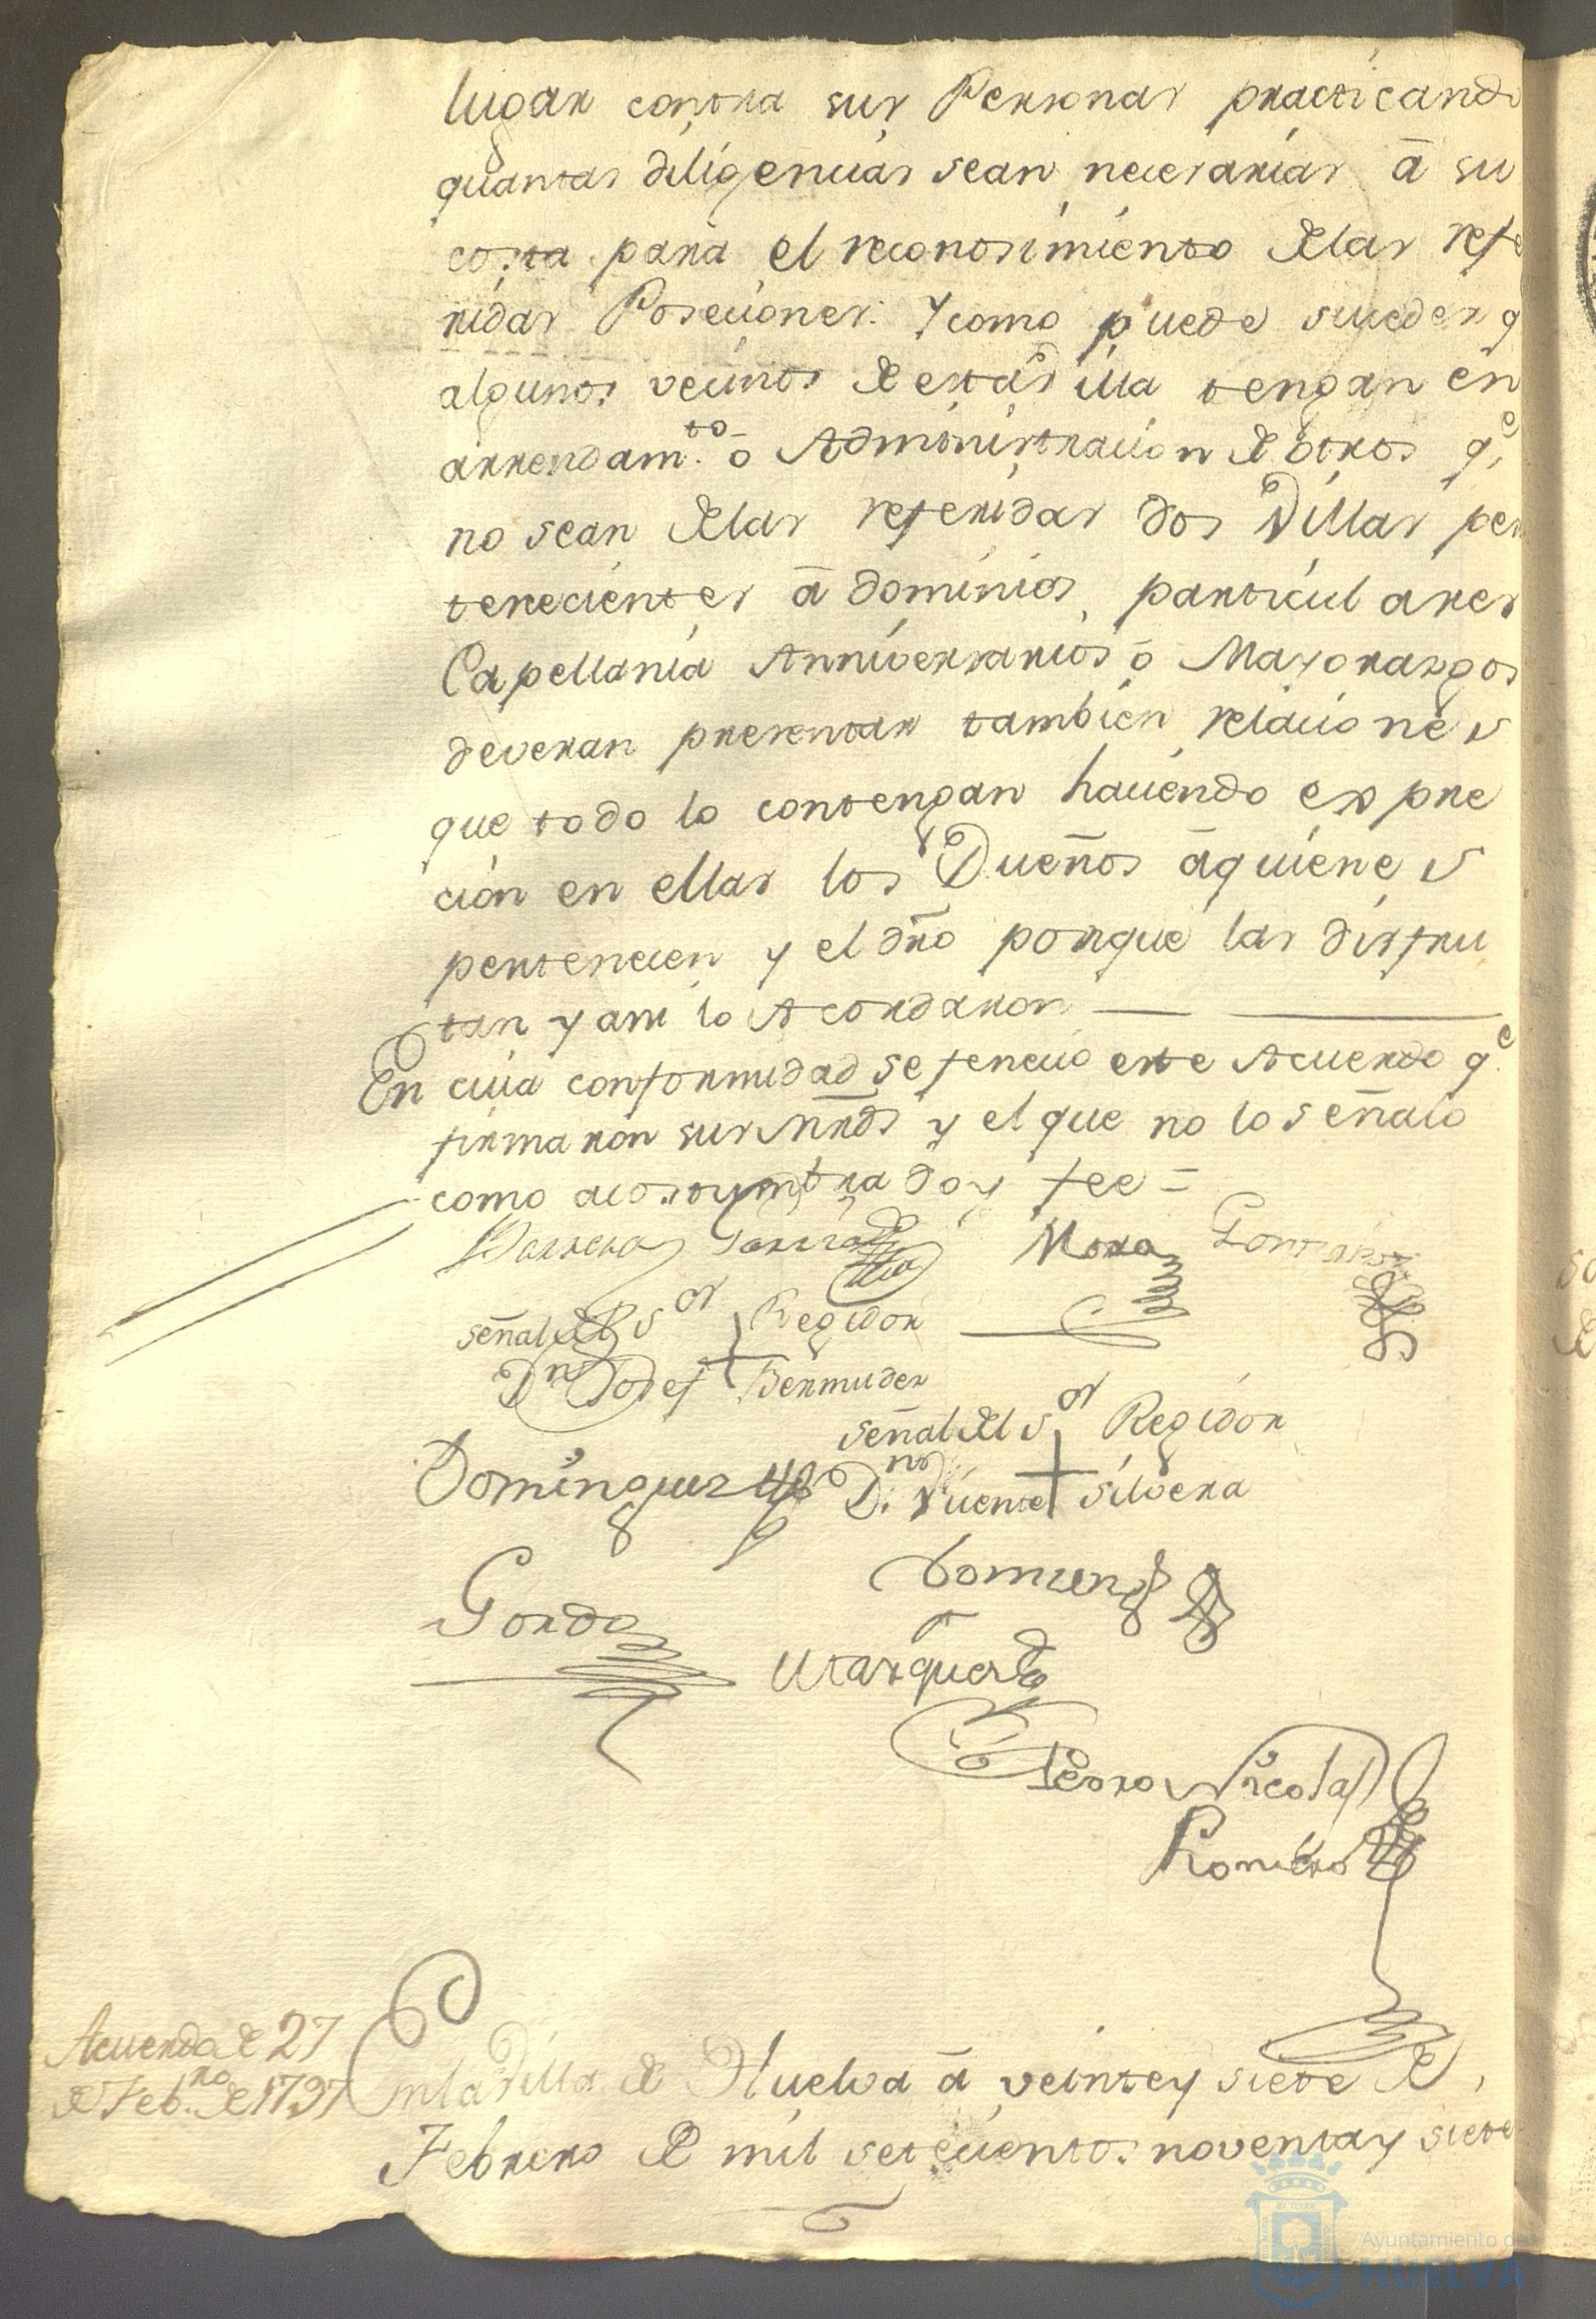 lugar contra sus Personas practicando
quantas diligencias sean necesarias â su
costa para el reconosimiento delas refe
ridas Poseciones. Y como puede suceder q
algunos vecinos de esta Villa tengan en
arrendam.to ô Administracion de otros q.e
no sean delas referidas dos Villas per
tenecientes â dominios particulares
Capellania Anniversarios ô Mayorasgos
deveran presentar tambien relaciones
que todo lo contengan haciendo expre
cion en ellas los Dueños âquienes
pertenecen y el dro porque las disfru
tan y asi lo Acordaron
En cuia conformidad se fenecio este Acuerdo q.e
firmaron sus mrds y el que no lo señalo
como acostumbra doy fee =
Barrera Garcia Mora
señal del S.or Regidor
Dn Josef + Bermudez
señal del S.or Regidor
D.n Vicente + Silvera
Dominguez
Gordo
Marquez
Pedro Nicolas
Romero
Acuerdo de 27
de Feb.ro de 1797
En la Villa de Huelva â veinte y siete de
Febrero de mil setecientos noventa y siete
Ayuntamiento de
HUELVA